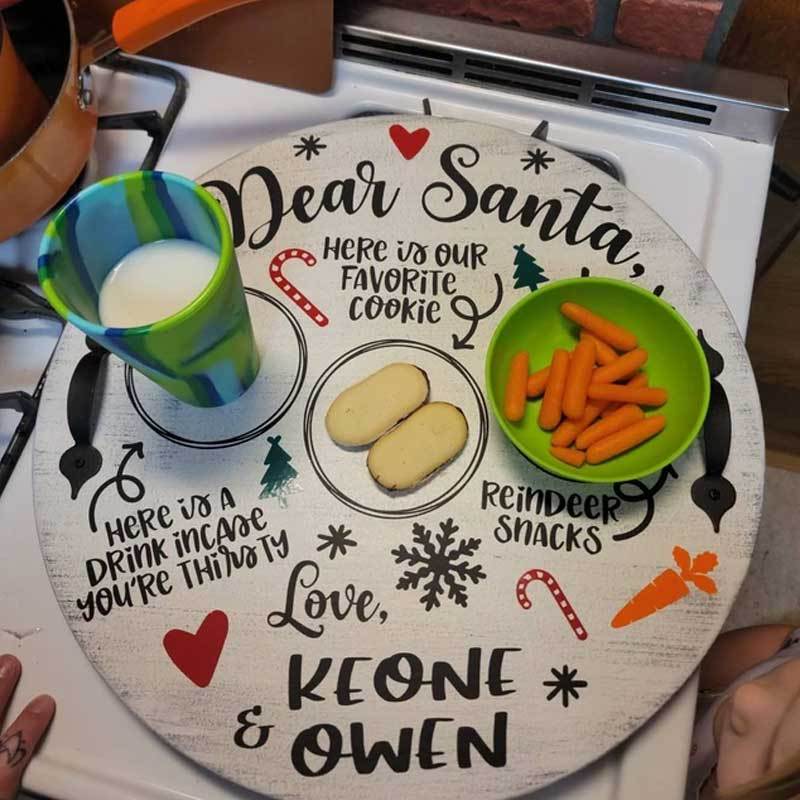 Dear Santa,
HERE is OUR
FAVORITE
COOKIE
HERE is A
DRINK INCASE
YOU'RE THIRSTY
REINDEER
SNACKS
Love,
KEONE
& OWEN